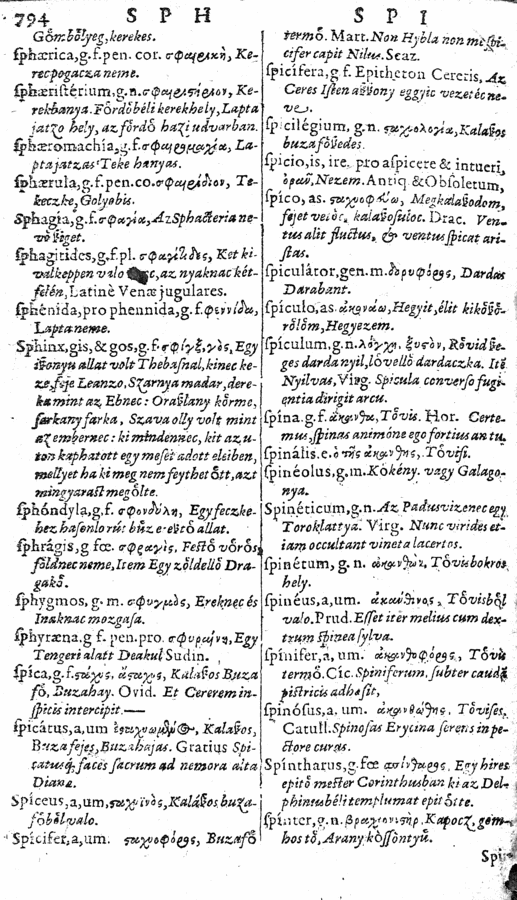 794 SPH SPI
Gőmbőlyeg, kerekes.
sphærica, g. f. pen. cor. σφαιρικὴ, Ke-
rec pogacza neme.
sphæristérium, g. n. σφαιριςήριον, Ke-
rekbanya. Főrdőbéli kerekhely, Lapta
jatzo hely, az főrdő hazi udvarban.
sphæromachia, g. f. σφαιρομαχία, La-
pta jatzas Teke hanyas.
sphærula, g. f. pen. co. σφαιρίδιον, Te-
keczke, Golyobis.
Sphagia, g. f. σφαγία, Az Sphacteria ne-
vő ßiget.
sphagitides, g. f. pl. σφαγίτιδες, Ket ki-
valkeppen valo az nyaknac két-
felén, Latinè Venæ jugulares.
sphenida, pro phennida, g. f. φεννίδα,
Lapta neme.
Sphinx, gis, & gos, g. f. σφίγξ, γὸς, Egy
ißonyu allat volt Thebasnal, kinec ke-
ze, feje Leanzo, Szarnya madar, dere-
ka mint az Ebnec: Oraßlany kőrme,
farkany farka, Szava olly volt mint
az embernec: ki mindennec, kit az u-
ton kaphatott egy mesét adott eleiben,
mellyet ha ki meg nem feythet őtt, azt
mingyarast megőlte.
sphóndyla, g. f. σφονδύλη, Egy feczke-
hez hasonlo rút bűz e-eßtő allat.
sphrágis, g fœ. σφραγὶς, Festő vőrős
főldnec neme, Item Egy zőldellő Dra-
gakő.
sphygmos, g. m. σφυγμὸς, Ereknec és
Inaknac mozgasa.
sphyræna, g f. pen. pro. σφυραίνα, Egy
Tengeri alatt Deakul Sudin.
spíca, g. f. ςάχυς, ἄςαχυς, Kalaßos Buza
fő, Buzahay. Ovid. Et Cererem in-
spicis intercipit.—
spicátus, a, um Kalaßos,
Buzafejes, Buzahajas. Gratius Spi-
catasq́; faces sacrum ad nemora alta
Dianæ.
Spíceus, a, um, ςαχυϊνὸς, Kaláßos buza-
főből valo.
Spícifer, a, um. ςαχυοφόρος, Buzafő
termő. Mart. Non Hybla non me spi-
cifer capit Nilus. Scaz.
spicifera, g f. Epitheton Cereris, Az
Ceres Isten aßßony eggyic vezetéc ne-
ve.
spicilégium, g. n. ςαχυολογία, Kalaßos
buza ßővedes.
spício, is, ire, pro aspicere & intueri,
ὁρᾷν, Nezem. Antiq & Obsoletum,
spíco, as. Megkalaßodom,
fejet veióc, kalaßosuloc. Drac. Ven-
tus alit fluctus, & ventus spicat ari-
stas.
spiculátor, gen. m. δορυφόρος, Dardas
Darabant.
spículo, as ἀκονάω, Hegyit, élit kikőßő-
rőlőm, Hegyezem.
spículum, g. n. λόγχη, ξυςὸν, Rővid ße-
ges darda nyil, lővellő dardaczka. Itē
Nyilvas, Virg. Spicula converso fugi-
entia dirigit arcu.
spína. g. f. ἄκανθα, Tővis. Hor. Certe-
mus, spinas animone ego fortius an tu.
spinális. e. ὁ τῆς ἀκάνθης, Tővisi.
spinéolus, g. m. Kőkény. vagy Galago-
nya.
Spinéticum, g. n. Az Padus vizenec egy
Toroklattya. Virg. Nunc virides et-
iam occultant vineta lacertos.
spinétum, g. n. ἀκανθὼν, Tővis bokros
hely.
spinéus, a, um. ἀκάνθινος, Tővisből
valo. Prud. Esset iter melius cum dex-
trum spinea sylva.
spínifer, a, um. ἀκανθοφόρος, Tővis
termő. Cic. Spiniferum subter caudā
pistricis adhæsit,
spinósus, a, um. ἀκανθώδης, Tővises.
Catull. Spinosas Erycina serens in pe-
ctore curas.
Spíntharus, g. fœ σπίνθαρος, Egy hires
epitő mester Corinthusban ki az Del-
phintubéli templumat epit őtte.
spínter, g. n. βραχιονιςὴρ, Kapocz, gőm-
bos tő, Arany kőssőntyű.
Spin-